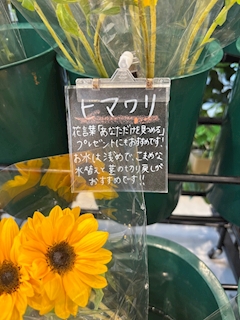 ヒマワリ
花言葉「あなただけを見つめる」
プレゼントにもおすすめです!
お水は浅めで、こまめな
水替えと茎の切り戻しが
おすすめです!!